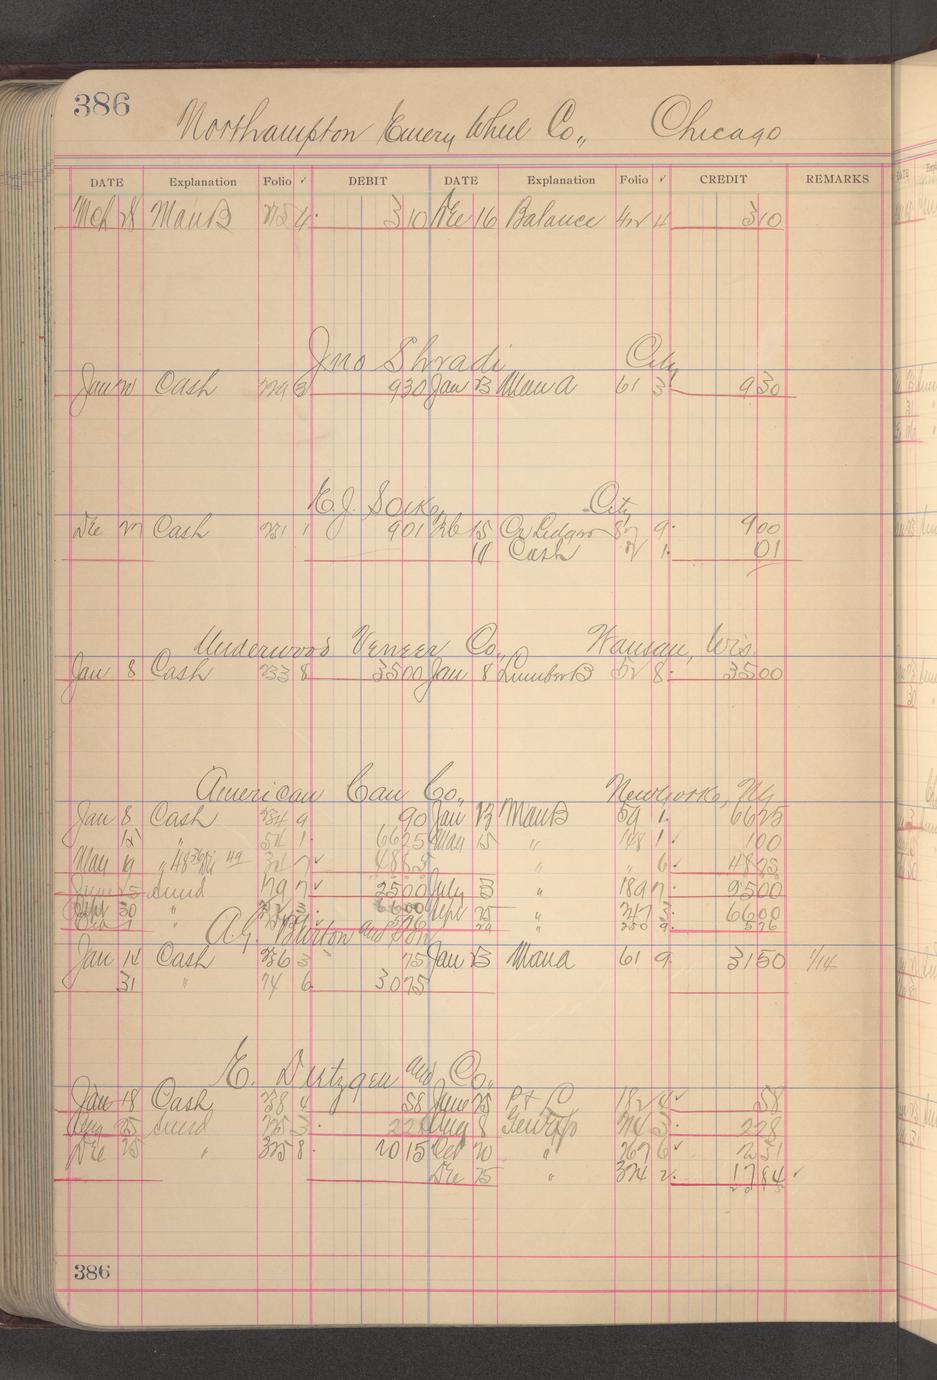 386
Northampton Emery Wheel Co., Chicago
DATE Explanation Folio ✓ DEBIT DATE Explanation Folio ✓ CREDIT REMARKS
Mch 28 ManB 4 310 Dec 16 Balance 310
Jno Shradi City
Jan Cash 3 930 Jan 13 Man a 61 3 930
E.J. City
Dec 27 Cash 1 901 Feb 15 Or Ledger 87 9 900
11 Cash 1 01
Underwood Veneer Co., Wausau, Wis.
Jan 8 Cash 233 8 3500 Jan 8 Lumber B 52 8 3500
American Can Co., New York, NY
Jan 8 Cash 234 9 90 Jan 13 ManB 59 1 6625
12 " 54 1 6625 May 15 " 148 1 100
May 19 " 7 " " 6 4875
June 15 Sund 179 7 2500 July 3 " 189 7 9500
Sept 30 " 3 6600 Sept 25 " 247 3 6600
" 29 " 250 9 576
A.G. Burton and Son
Jan 14 Cash 236 3 75 Jan 13 Man a 61 9 3150 1/14
31 " 74 6 3075
E. Dietzgen and Co.,
Jan 18 Cash 238 4 58 June 25 P & L 182 4 58
Aug 25 Sund 3 228 Aug 8 3 228
Dec 25 " 325 8 2015 Oct 20 " 267 6 231
Dec 25 " 324 2 1784
386